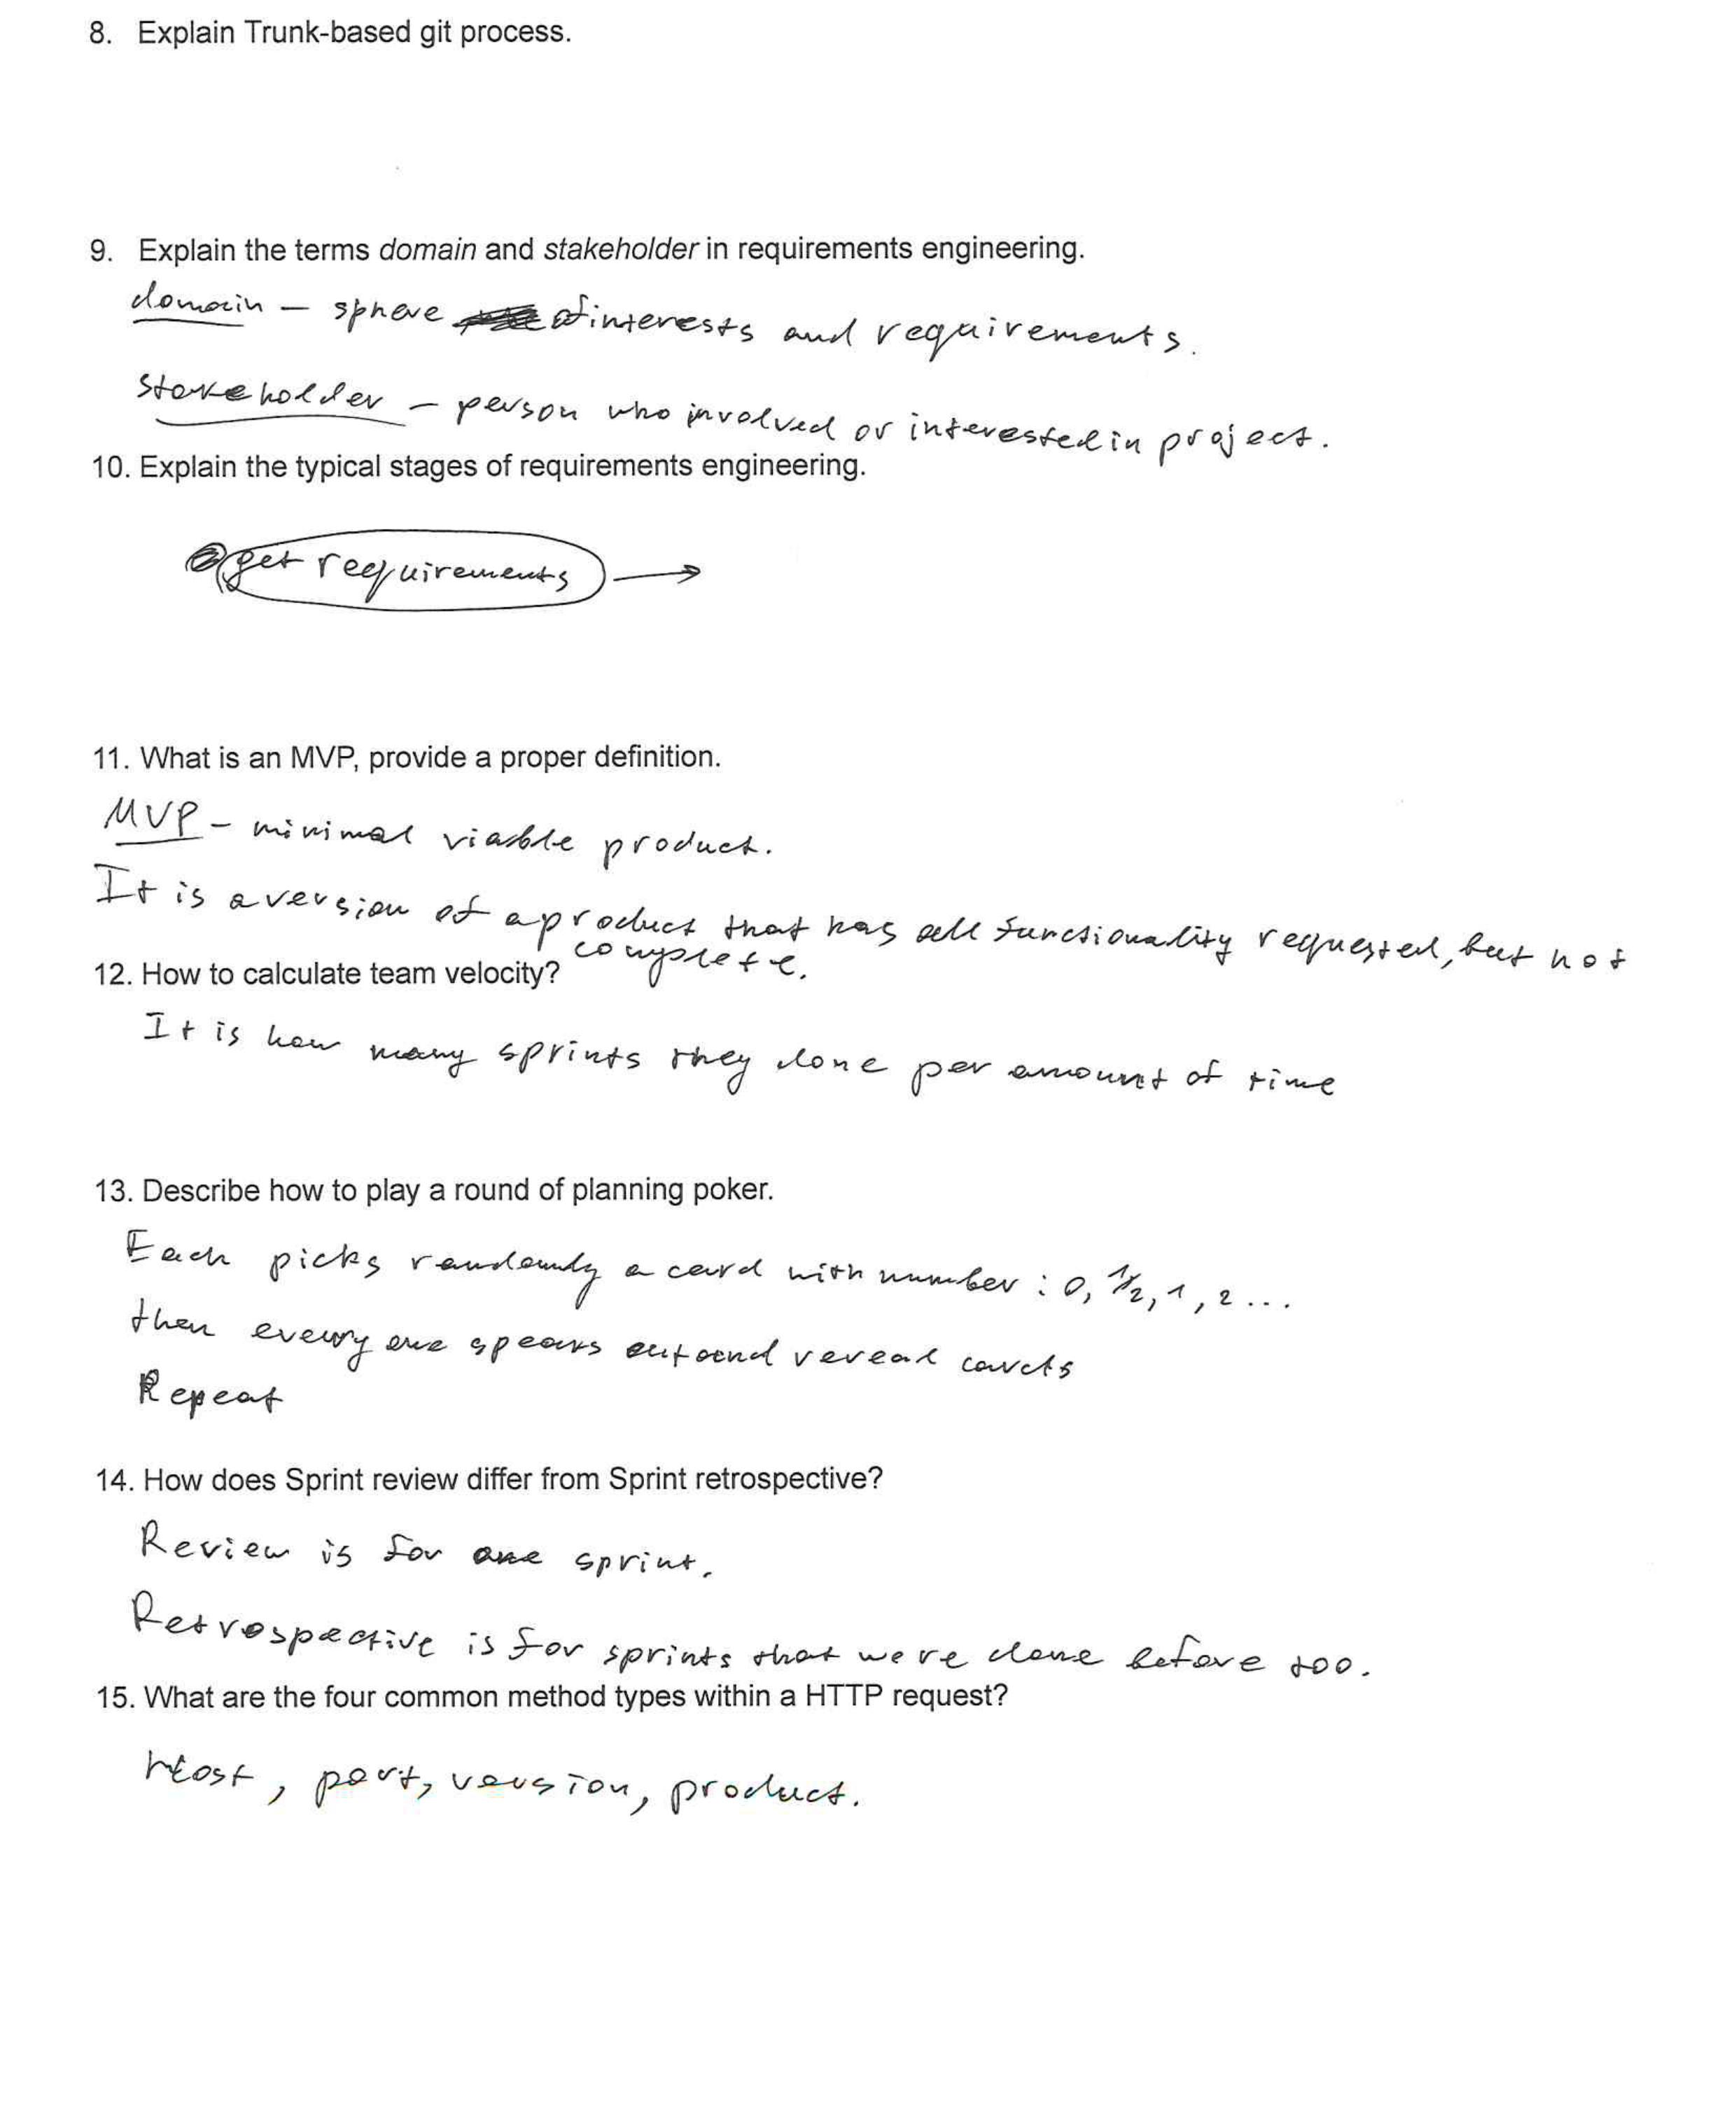 8. Explain Trunk-based git process.
9. Explain the terms domain and stakeholder in requirements engineering.
domain – sphere of interests and requirements.
stakeholder – person who involved or interested in project.
10. Explain the typical stages of requirements engineering.
get requirements →
11. What is an MVP, provide a proper definition.
MVP – minimal viable product.
It is a version of a product that has all functionality requested, but not
complete.
12. How to calculate team velocity?
It is how many sprints they done per amount of time
13. Describe how to play a round of planning poker.
Each picks randomly a card with number: 0, 1/2, 1, 2...
then every one spears out and reveal cards
Repeat
14. How does Sprint review differ from Sprint retrospective?
Review is for one sprint.
Retrospective is for sprints that were done before too.
15. What are the four common method types within a HTTP request?
Host, port, version, product.